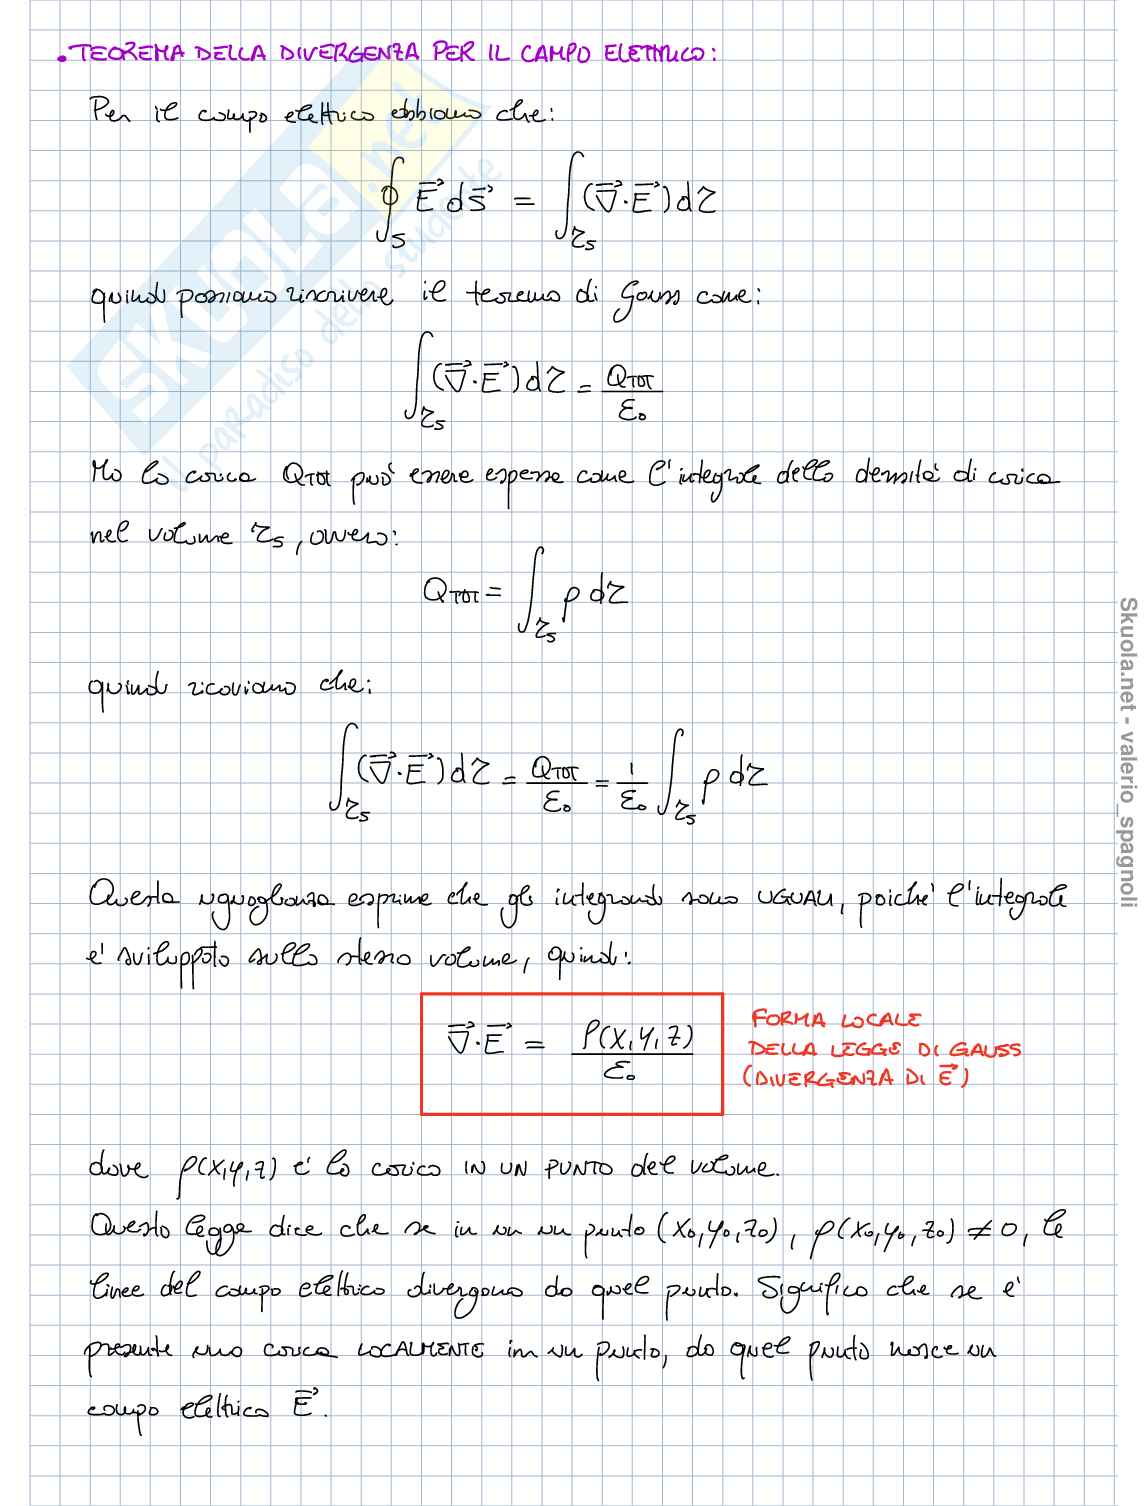 . TEOREMA DELLA DIVERGENZA PER IL CAMPO ELETTRICO:
Per il campo elettrico abbiamo che:
∮_S E⃗ dS⃗ = ∫_τS (∇⃗·E⃗) dτ
quindi possiamo riscrivere il teorema di Gauss come:
∫_τS (∇⃗·E⃗) dτ = Q_TOT / ε₀
Ma la carica Q_TOT può essere espressa come l'integrale della densità di carica
nel volume τ_S, ovvero:
Q_TOT = ∫_τS ρ dτ
quindi ricaviamo che:
∫_τS (∇⃗·E⃗) dτ = Q_TOT / ε₀ = 1/ε₀ ∫_τS ρ dτ
Questa uguaglianza esprime che gli integrandi sono UGUALI, poiché l'integrale
è sviluppato sullo stesso volume, quindi:
∇⃗·E⃗ = ρ(x,y,z) / ε₀
FORMA LOCALE
DELLA LEGGE DI GAUSS
(DIVERGENZA DI E⃗)
dove ρ(x,y,z) è la carica IN UN PUNTO del volume.
Questa legge dice che se in un un punto (x₀,y₀,z₀), ρ(x₀,y₀,z₀) ≠ 0, le
linee del campo elettrico divergono da quel punto. Significa che se è
presente una carica LOCALMENTE in un punto, da quel punto nasce un
campo elettrico E⃗.
SKUOLA.net
il paradiso dello studente
Skuola.net - valerio_spagnoli